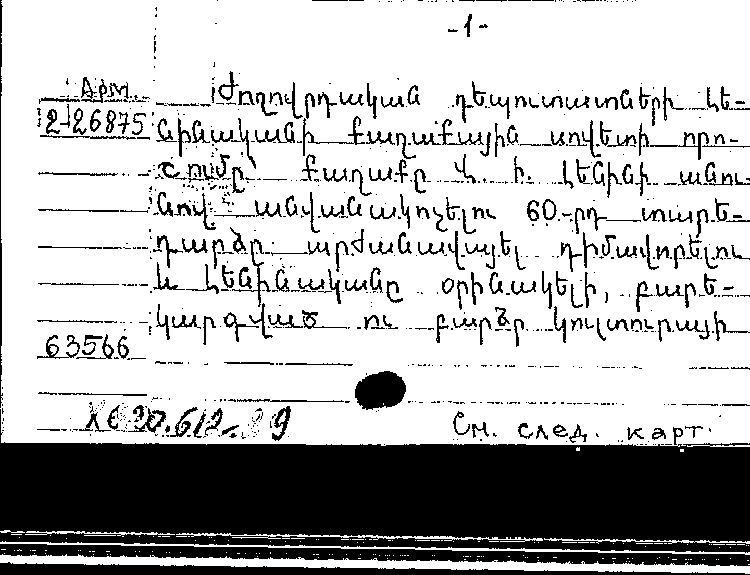 -1-
Арм.
2-26875
Ժողովրդական դեպուտատների Լե-
նինականի քաղաքային սովետի որո-
շումը՝ քաղաքը Վ. Ի. Լենինի անու-
նով անվանակոչելու 60-րդ տարե-
դարձը արժանավայել դիմավորելու
և Լենինականը օրինակելի, բարե-
կարգված ու բարձր կուլտուրայի
63566
См. след. карт.